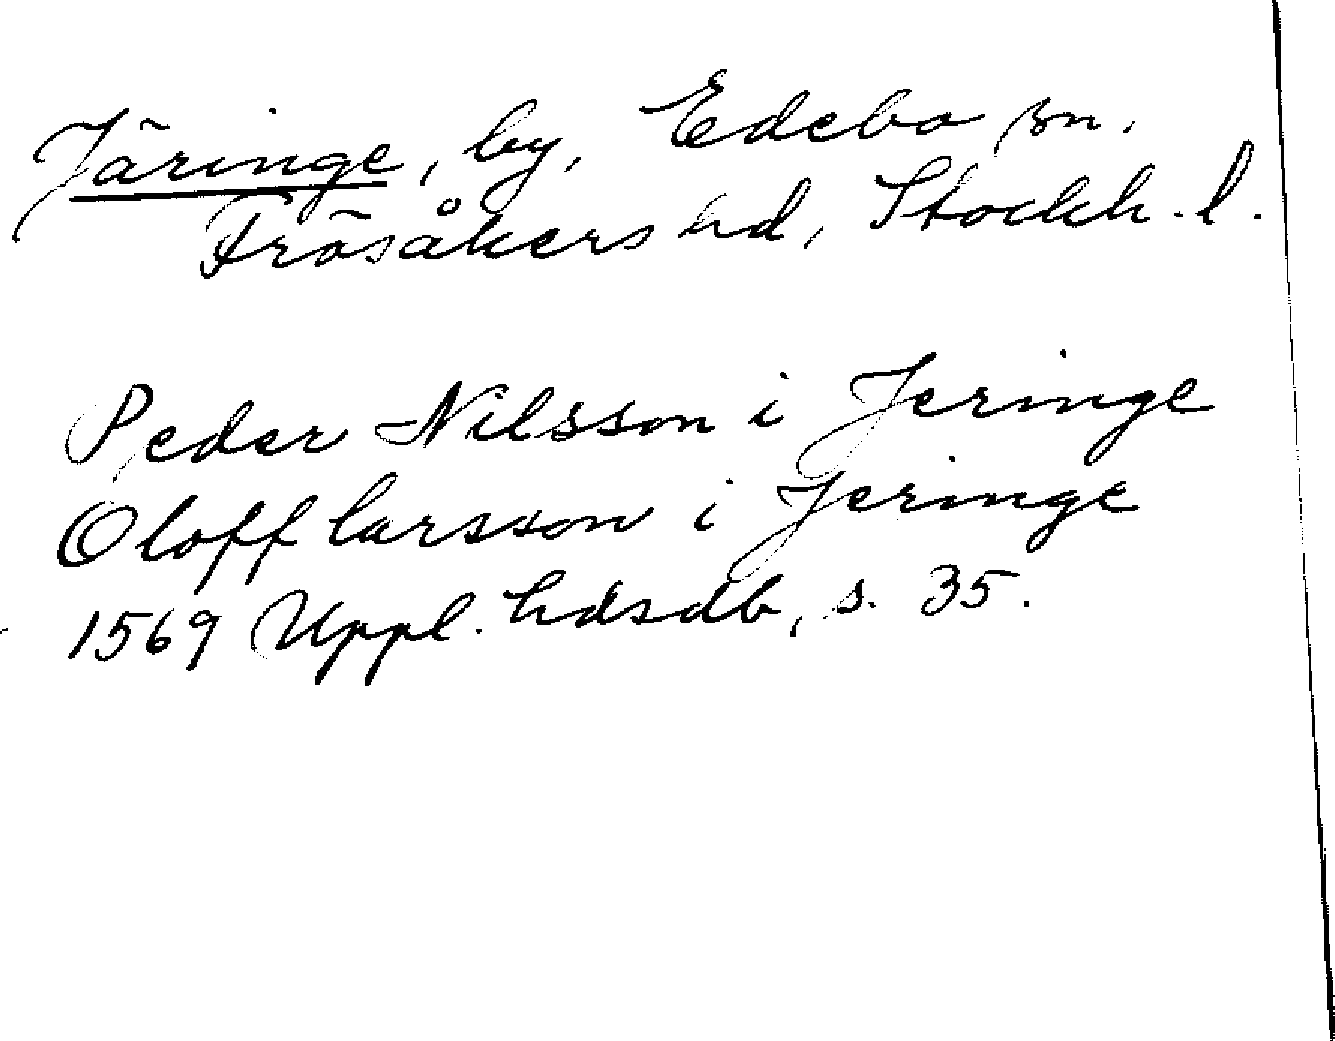 Järinge, by, Edebo sn.
Frösåkers hd, Stockh. l.
Peder Nilsson i Jeringe
Oloff larsson i Jeringe
1569 Uppl. hdsdb, s. 35.